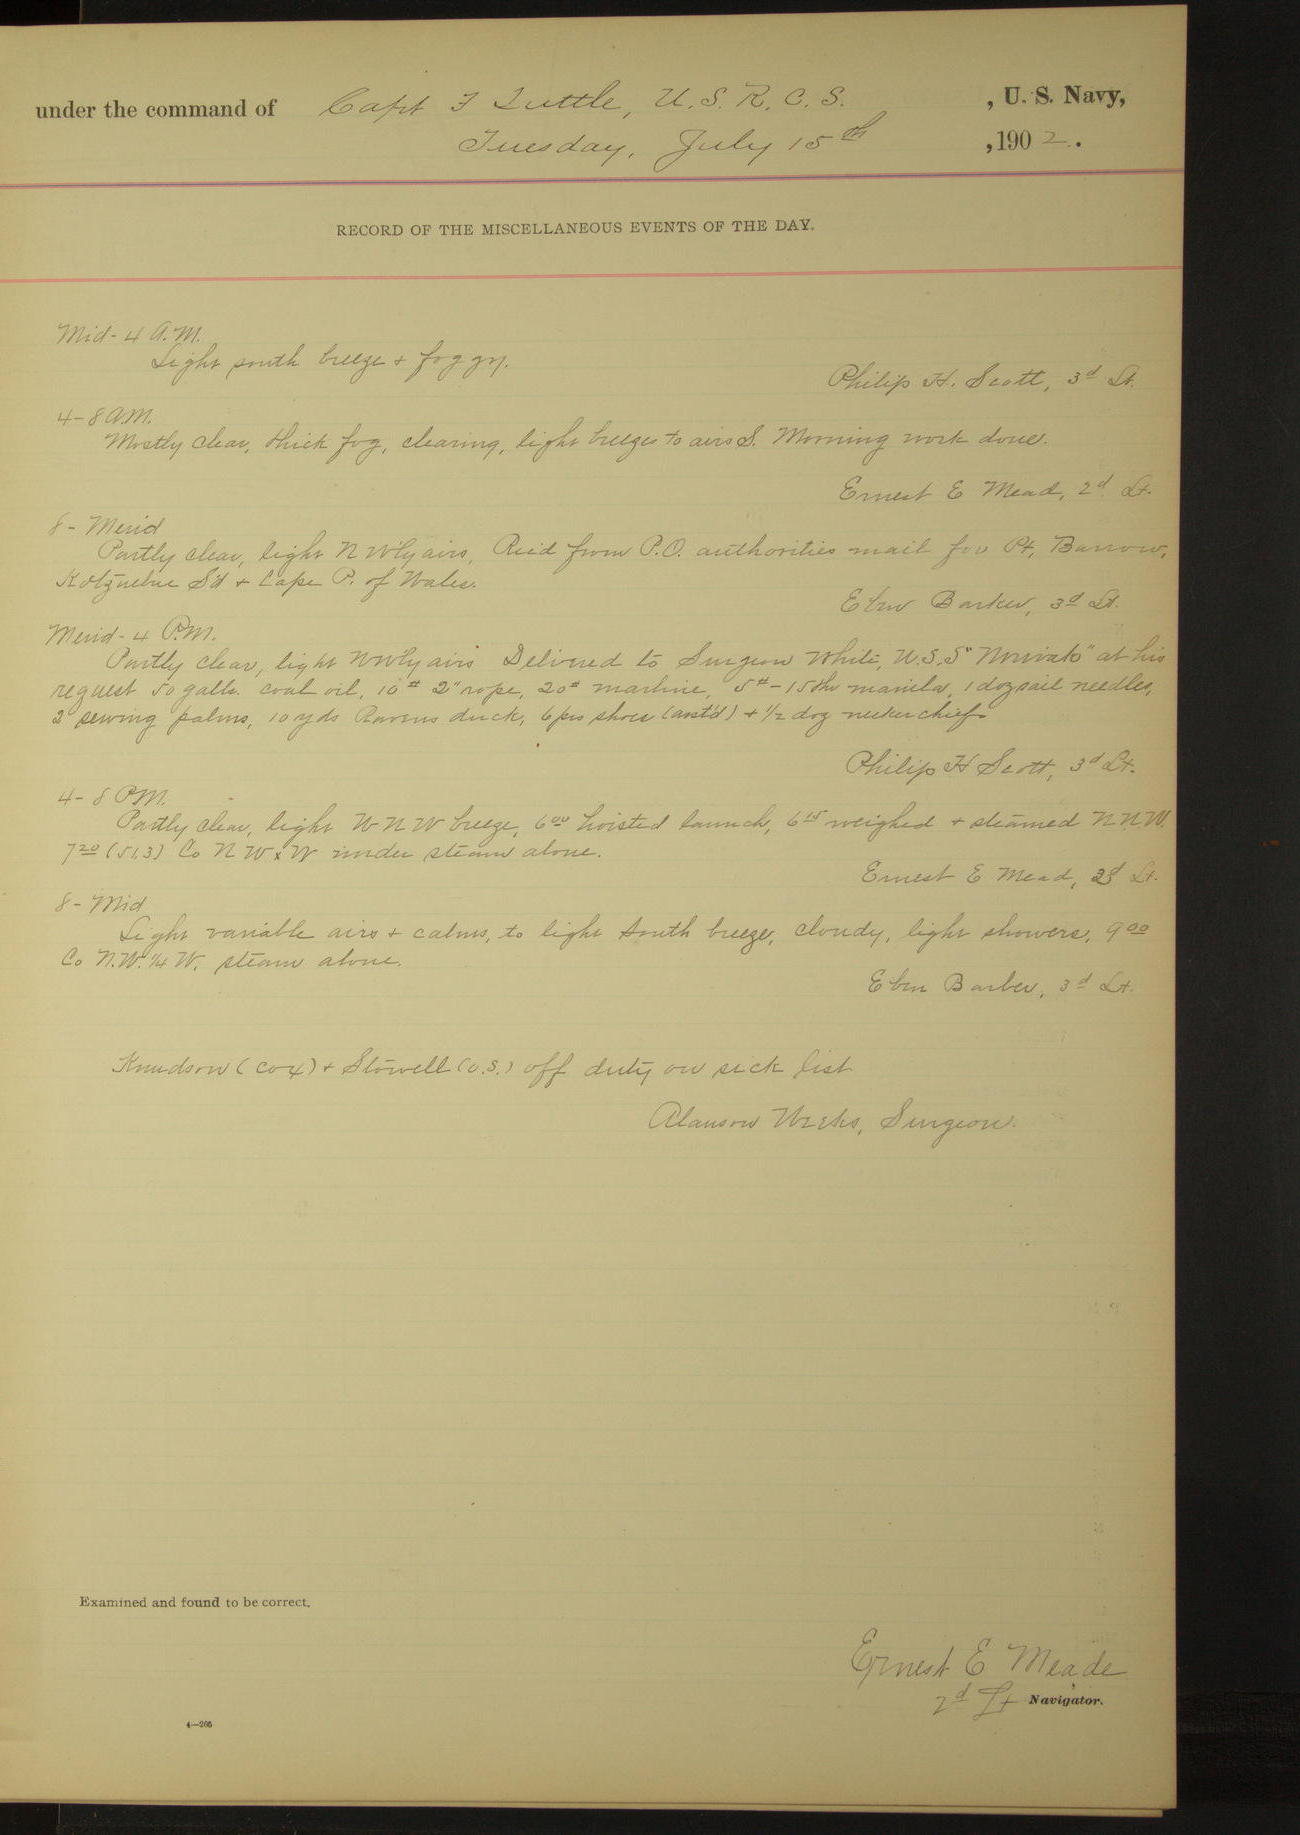 under the command of Capt F Tuttle, U. S. R. C. S. , U. S. Navy,
Tuesday, July 15th ,1902.
RECORD OF THE MISCELLANEOUS EVENTS OF THE DAY.
Mid - 4 A.M.
Light south breeze + foggy.
Philip H. Scott, 3d Lt.
4 - 8 A.M.
Mostly clear, thick fog, clearing, light breezes to airs S. Morning work done.
Ernest E Mead, 2d Lt.
8 - Merid
Partly clear, light NW'ly airs, Rec'd from P.O. authorities mail for Pt. Barrow,
Kotzebue S'd + Cape P. of Wales.
Eben Barker, 3d Lt.
Merid - 4 P.M.
Partly clear, light NWly airs Delivered to Surgeon White, U.S.S. at his
request 50 galls. coal oil, 10# 2" rope, 20# marline, 5# - 15thr manila, 1 doz sail needles,
2 sewing palms, 10 yds Ravens duck, 6 prs shoes (asst'd) + 1/2 doz neckerchiefs
Philip H Scott, 3d Lt.
4 - 8 P.M.
Partly clear, light WNW breeze, 6 00 hoisted launch, 6 15 weighed + steamed NNW.
7 20 (51.3) Co NW x W under steam alone.
Ernest E Mead, 2d Lt.
8 - Mid
Light variable airs + calms, to light South breeze, cloudy, light showers, 9 00
Co N.W. 1/4 W. steam alone.
Eben Barker, 3d Lt.
Knudson (cox) + Stowell (O.S.) off duty on sick list
Alanson Weeks, Surgeon.
Examined and found to be correct.
Ernest E Meade
2d Lt Navigator.
4—265